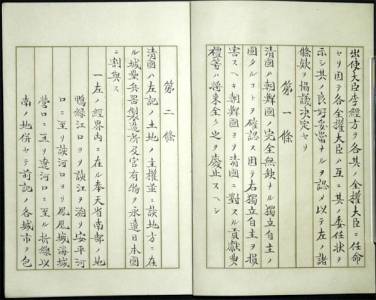 出使大臣李經方ヲ各其ノ全權大臣ニ任命
セリ因テ各全權大臣ハ互ニ其ノ委任狀ヲ
示シ其ノ良好妥當ナルヲ認メ以テ左ノ諸
條欵ヲ協議決定セリ
第一條
淸國ハ朝鮮國ノ完全無缺ナル獨立自主ノ
國タルコトヲ確認ス因テ右獨立自主ヲ損
害スヘキ朝鮮國ヨリ淸國ニ對スル貢獻典
禮等ハ將來全ク之ヲ廢止スヘシ
第二條
淸國ハ左記ノ土地ノ主權並ニ該地方ニ在
ル城壘兵器製造所及官有物ヲ永遠日本國
ニ割與ス
一左ノ經界內ニ在ル奉天省南部ノ地
鴨綠江口ヨリ該江ヲ溯リ安平河
口ニ至リ該河口ヨリ鳳凰城海城
營口ニ亙リ遼河口ニ至ル折線以
南ノ地併セテ前記ノ各城市ヲ包